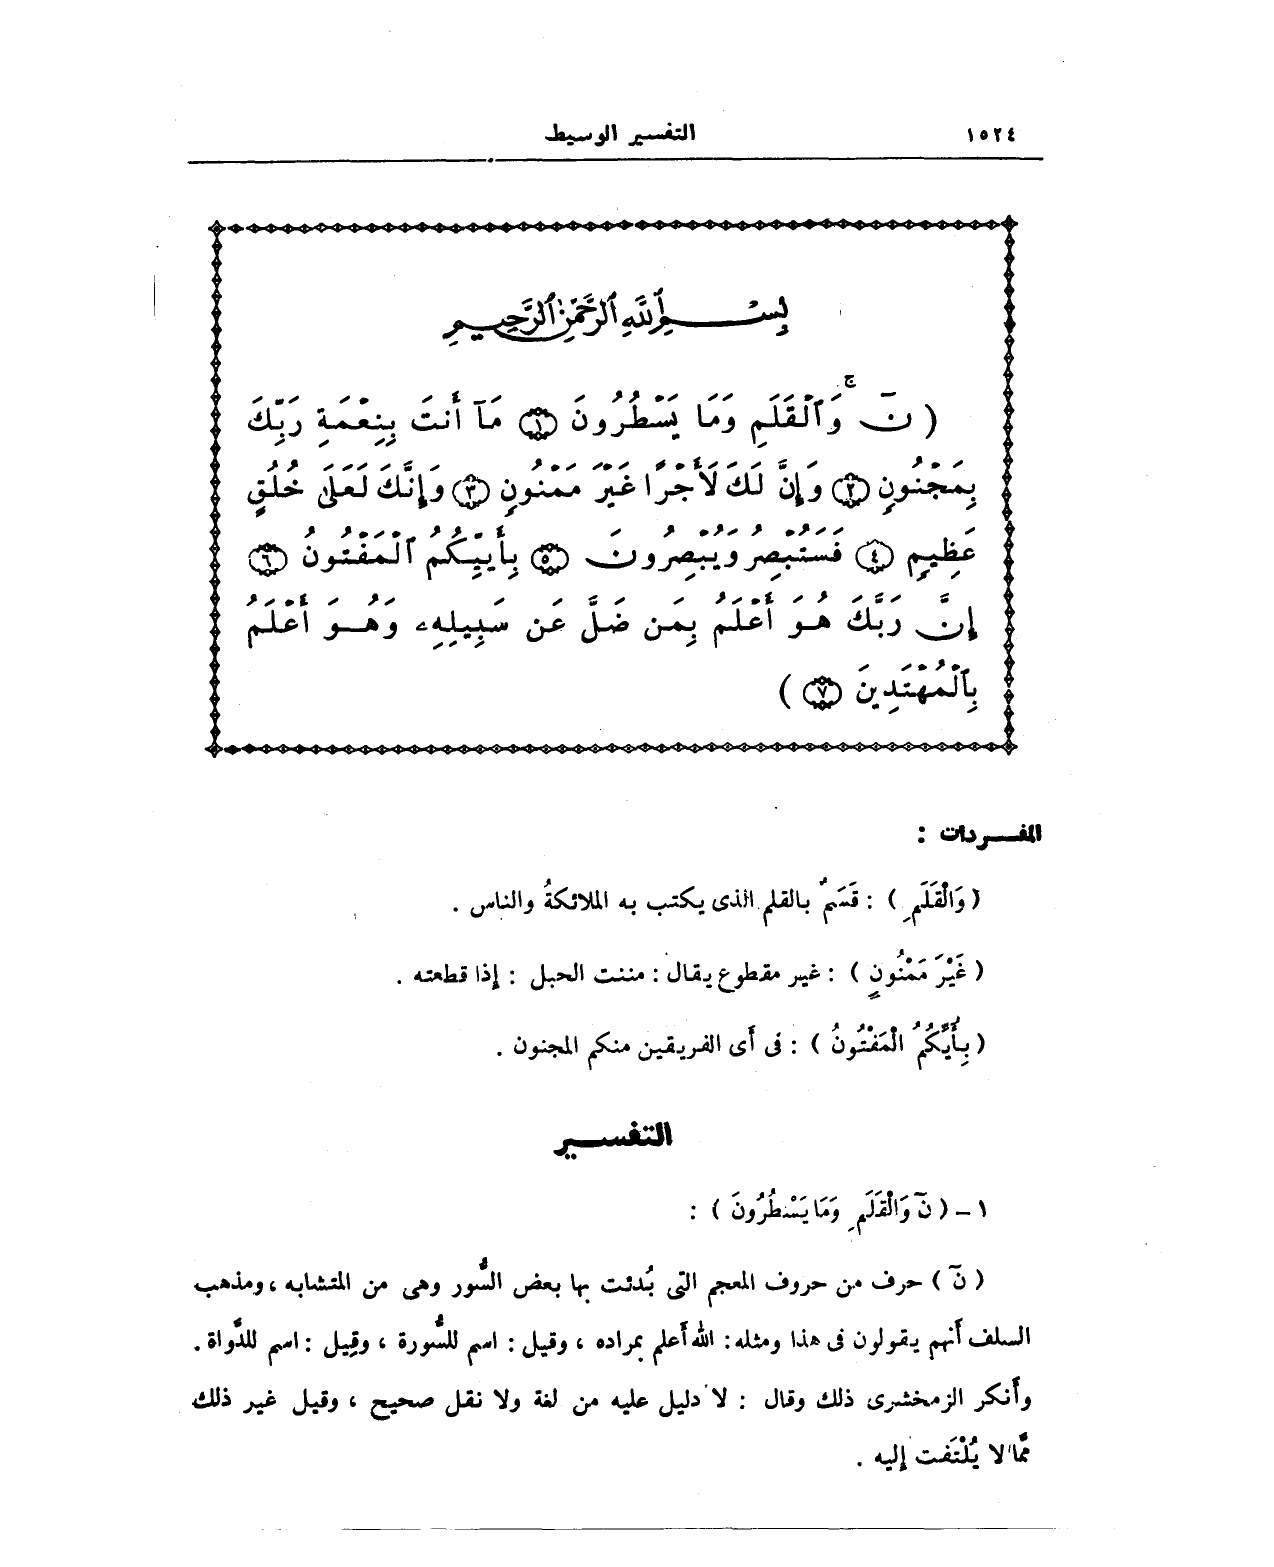 ١٥٢٤ التفسير الوسيط
بِسْمِ ٱللَّهِ ٱلرَّحْمَٰنِ ٱلرَّحِيمِ
( نٓ ۚ وَٱلْقَلَمِ وَمَا يَسْطُرُونَ ١ مَآ أَنتَ بِنِعْمَةِ رَبِّكَ
بِمَجْنُونٍ ٢ وَإِنَّ لَكَ لَأَجْرًا غَيْرَ مَمْنُونٍ ٣ وَإِنَّكَ لَعَلَىٰ خُلُقٍ
عَظِيمٍ ٤ فَسَتُبْصِرُ وَيُبْصِرُونَ ٥ بِأَييِّكُمُ ٱلْمَفْتُونُ ٦
إِنَّ رَبَّكَ هُوَ أَعْلَمُ بِمَن ضَلَّ عَن سَبِيلِهِۦ وَهُوَ أَعْلَمُ
بِٱلْمُهْتَدِينَ ٧ )
المفــردات :
( وَالْقَلَمِ ) : قَسَمٌ بالقلم الذى يكتب به الملائكةُ والناس .
( غَيْرَ مَمْنُونٍ ) : غير مقطوع يقال : مننت الحبل : إذا قطعته .
( بِأَيِّكُمُ الْمَفْتُونُ ) : فى أَى الفريقين منكم المجنون .
التفســير
١ – ( نٓ وَالْقَلَمِ وَمَا يَسْطُرُونَ ) :
( نٓ ) حرف من حروف المعجم التى بُدئت بها بعض السُّور وهى من المتشابه ، ومذهب
السلف أَنهم يقولون فى هذا ومثله : الله أَعلم بمراده ، وقيل : اسم للسُّورة ، وقِيل : اسم للدَّواة .
وأَنكر الزمخشرى ذلك وقال : لا دليل عليه من لغة ولا نقل صحيح ، وقيل غير ذلك
مَّما لا يُلْتَفت إليه .